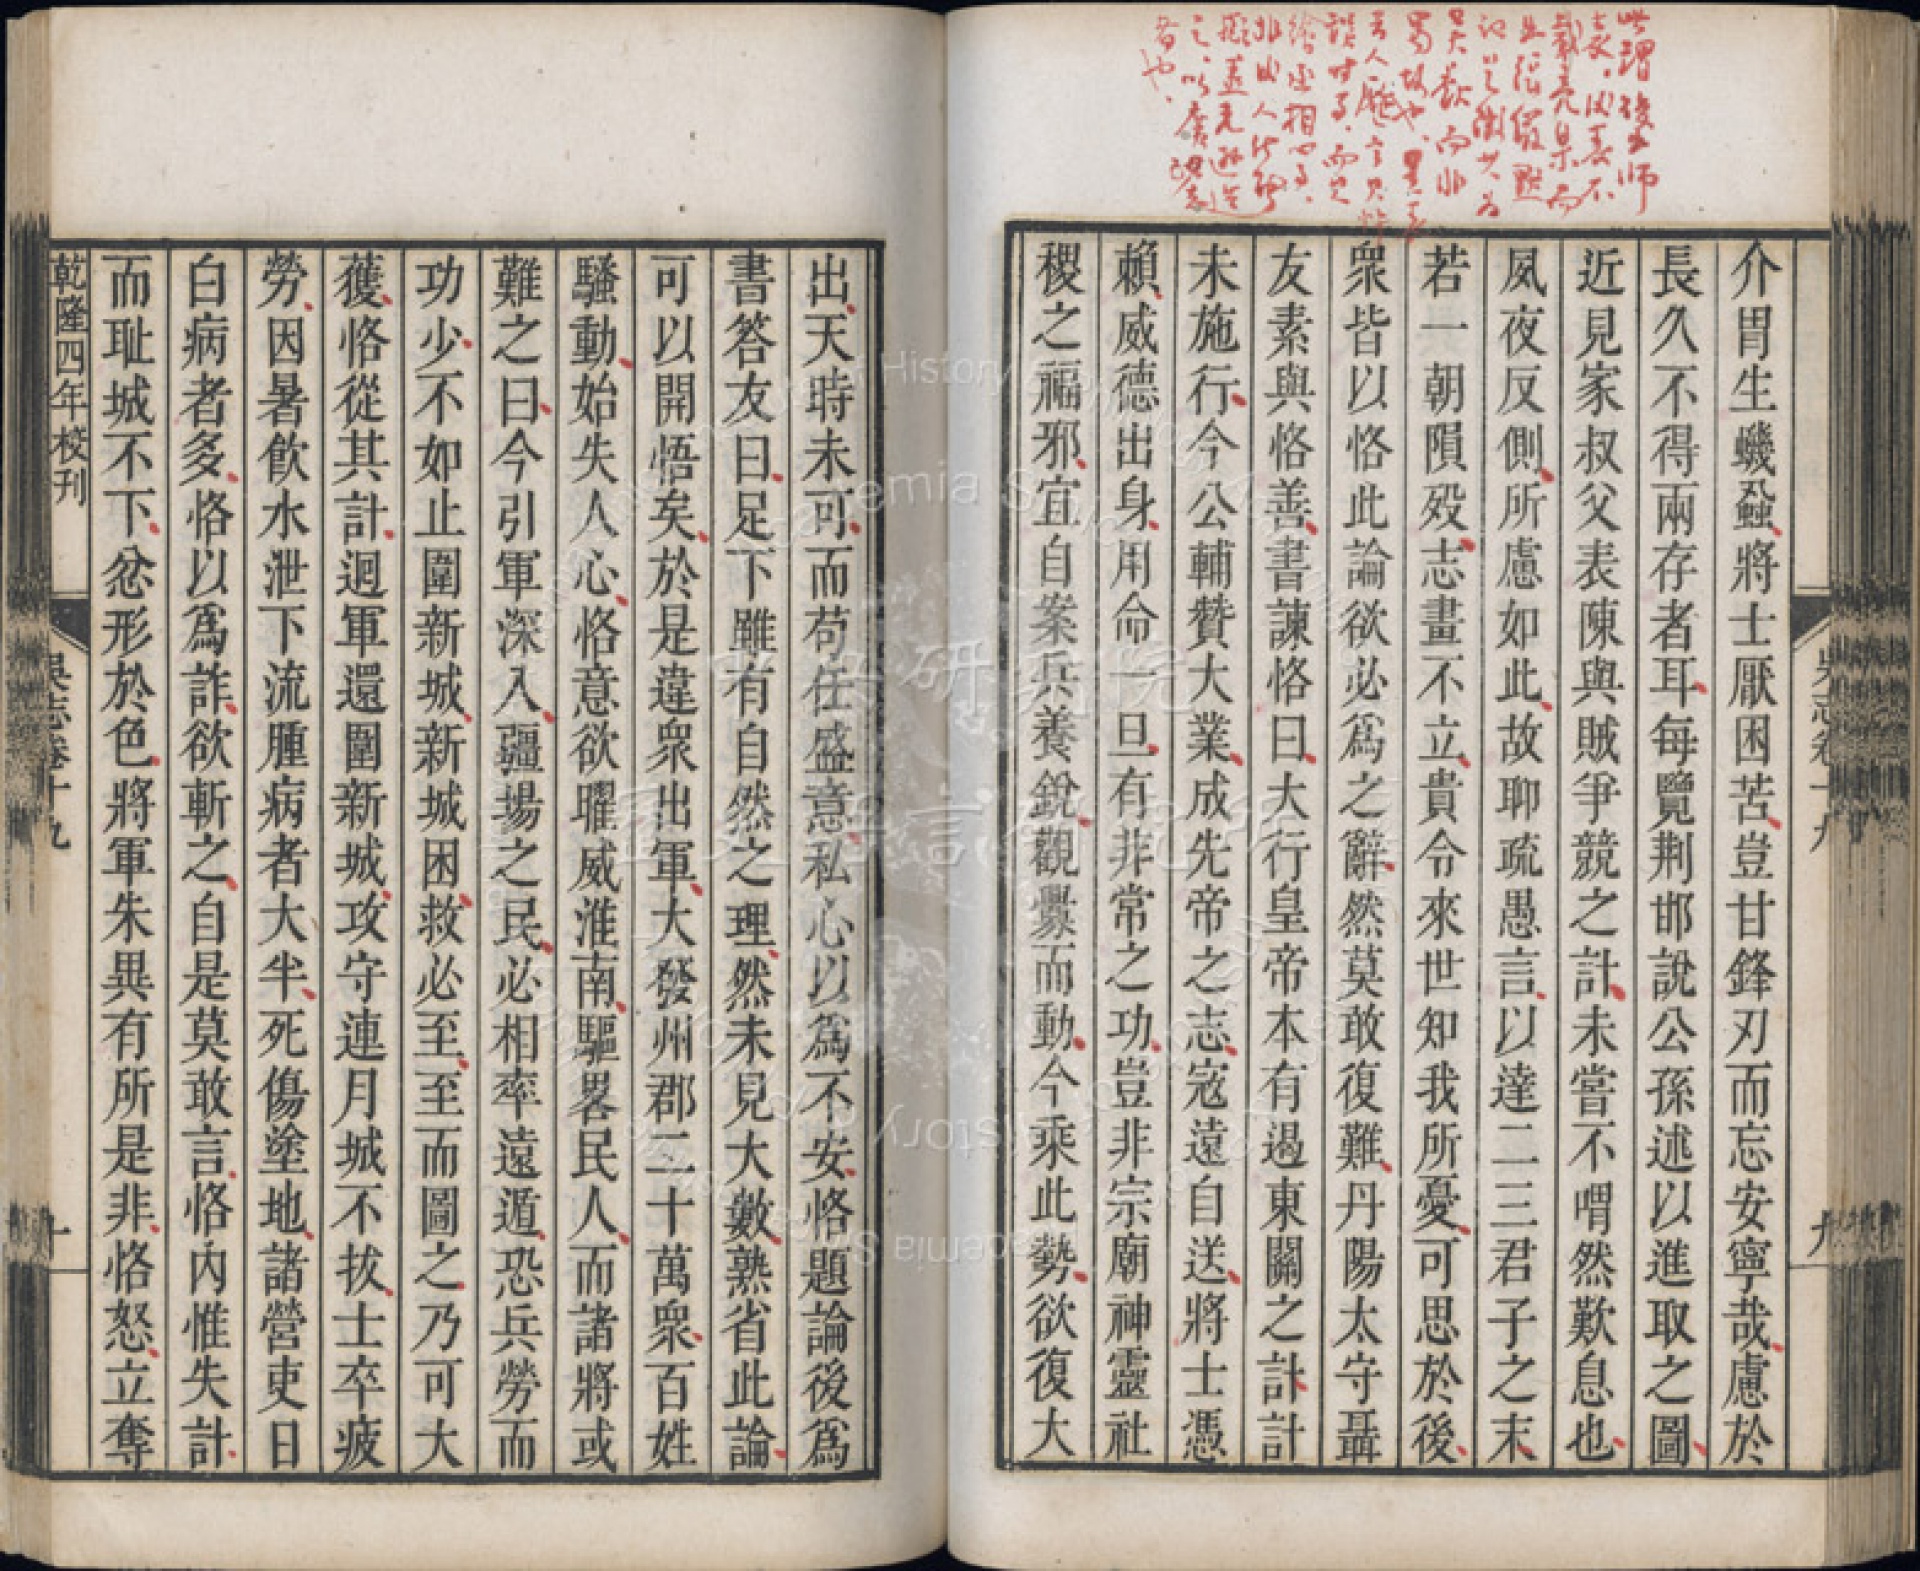 介胄生蟣蝨將士厭困苦豈甘鋒刃而忘安寧哉慮於
長久不得兩存者耳每覽荆邯說公孫述以進取之圖
近見家叔父表陳與賊爭競之計未嘗不喟然歎息也
夙夜反側所慮如此故聊疏愚言以達二三君子之末
若一朝隕歿志畫不立貴令來世知我所憂可思於後
衆皆以恪此論欲必爲之辭然莫敢復難丹陽太守聶
友素與恪善書諫恪曰大行皇帝本有遏東關之計計
未施行今公輔贊大業成先帝之志寇遠自送將士憑
賴威德出身用命一旦有非常之功豈非宗廟神靈社
稷之福邪宜自案兵養銳觀釁而動今乘此勢欲復大
出天時未可而苟任盛意私心以爲不安恪題論後爲
書答友曰足下雖有自然之理然未見大數熟省此論
可以開悟矣於是違衆出軍大發州郡二十萬衆百姓
騷動始失人心恪意欲曜威淮南驅畧民人而諸將或
難之曰今引軍深入疆場之民必相率遠遁恐兵勞而
功少不如止圍新城新城困救必至至而圖之乃可大
獲恪從其計迴軍還圍新城攻守連月城不拔士卒疲
勞因暑飲水泄下流腫病者大半死傷塗地諸營吏日
白病者多恪以爲詐欲斬之自是莫敢言恪內惟失計
而耻城不下忿形於色將軍朱異有所是非恪怒立奪
乾隆四年校刊
吳志卷十九
十